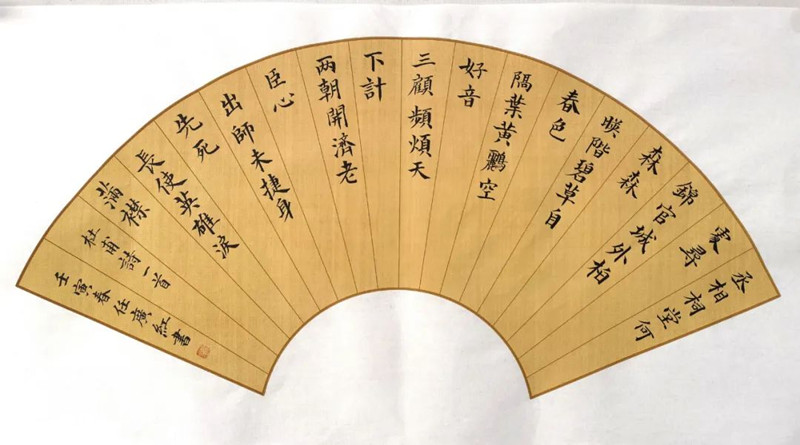 丞相祠堂何
處尋
錦官城外柏
森森
暎階碧草自
春色
隔葉黃鸝空
好音
三顧頻煩天
下計
两朝開濟老
臣心
出師未捷身
先死
長使英雄淚
滿襟
杜甫詩一首
壬寅春任廣紅書